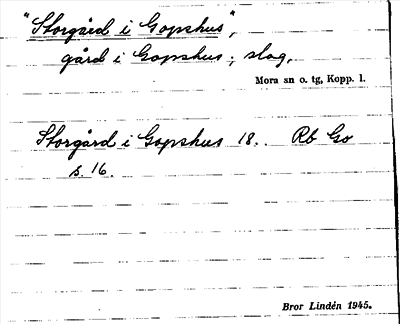 "Storgård i Gopshus",
gård i Gopshus; slog.
Mora sn o. tg, Kopp. l.
Storgård i Gopshus 18. Rb Go
s. 16.
Bror Lindén 1945.